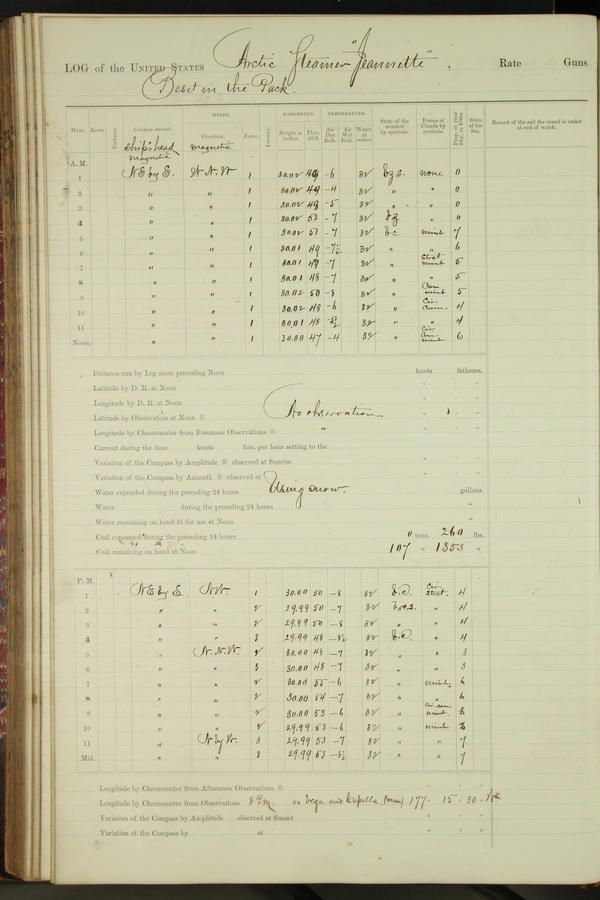 LOG of the UNITED STATES Arctic Steamer "Jeannette", Rate Guns
Beset in the Pack.
WINDS. BAROMETER. TEMPERATURE.
Hour. Knots. Fathoms. Courses steered. Direction. Force. Leeway. Height in inches. Ther. att'd. Air Dry Bulb. Air Wet Bulb. Water at surface. State of the weather by symbols. Forms of Clouds by symbols. State of the Sea. Record of the sail the vessel is under at end of watch.
ship's head magnetic magnetic
A. M.
1 NE by E. N.N.W 1 30.02 49 -6 32 none 0
2 " " 1 30.02 49 -4 32 " " 0
3 " " 1 30.02 49 -5 32 " " 0
4 " " 1 30.02 52 -7 32 " 0
5 " " 1 30.02 51 -7 32 7
6 " " 1 30.01 49 -7½ 32 " " 6
7 " " 1 30.01 49 -7 32 " 5
8 " " 1 30.01 48 -7 32 " " 5
9 " " 1 30.02 50 -8 32 " 5
10 " " 1 30.02 48 -6 32 " Cir. Cum. 4
11 " " 1 30.01 48 32 " " 4
Noon. " " 1 30.00 47 -4 32 " 6
Distance run by Log since preceding Noon knots fathoms.
Latitude by D. R. at Noon
Longitude by D. R. at Noon
Latitude by Observation at Noon No observation
Longitude by Chronometer from Forenoon Observations "
Current during the time knots fms. per hour setting to the
Variation of the Compass by Amplitude observed at Sunrise
Variation of the Compass by Azimuth observed at
Water expended during the preceding 24 hours Using snow. gallons.
Water during the preceding 24 hours "
Water remaining on hand fit for use at Noon "
Coal consumed during the preceding 24 hours " tons. 260 lbs.
Coal remaining on hand at Noon 107 " 1353 "
P. M.
1 NE by E. NW. 1 30.00 50 -8 32 Cir. Strat. 4
2 " " 2 29.99 50 -7 32 " 4
3 " " 2 29.99 50 -8 32 " " 4
4 " " 3 29.99 48 -8½ 32 " 4
5 " N.N.W. 2 30.00 48 -7 32 " " 3
6 " " 3 30.00 48 -7 32 " " 3
7 " " 2 30.00 55 -6 32 " 6
8 " " 2 30.00 54 -7 32 " " 6
9 " " 2 30.00 53 -6 32 "
10 " " 2 29.99 53 -6 32 "
11 " N by W. 3 29.99 53 -7 32 " " 7
Mid. " " 3 29.99 53 -8½ 32 " " 7
Longitude by Chronometer from Afternoon Observations
Longitude by Chronometer from Observations 8 P.M. Vega and Capella (mean) 177- 15'- 30"
Variation of the Compass by Amplitude observed at Sunset
Variation of the Compass by at